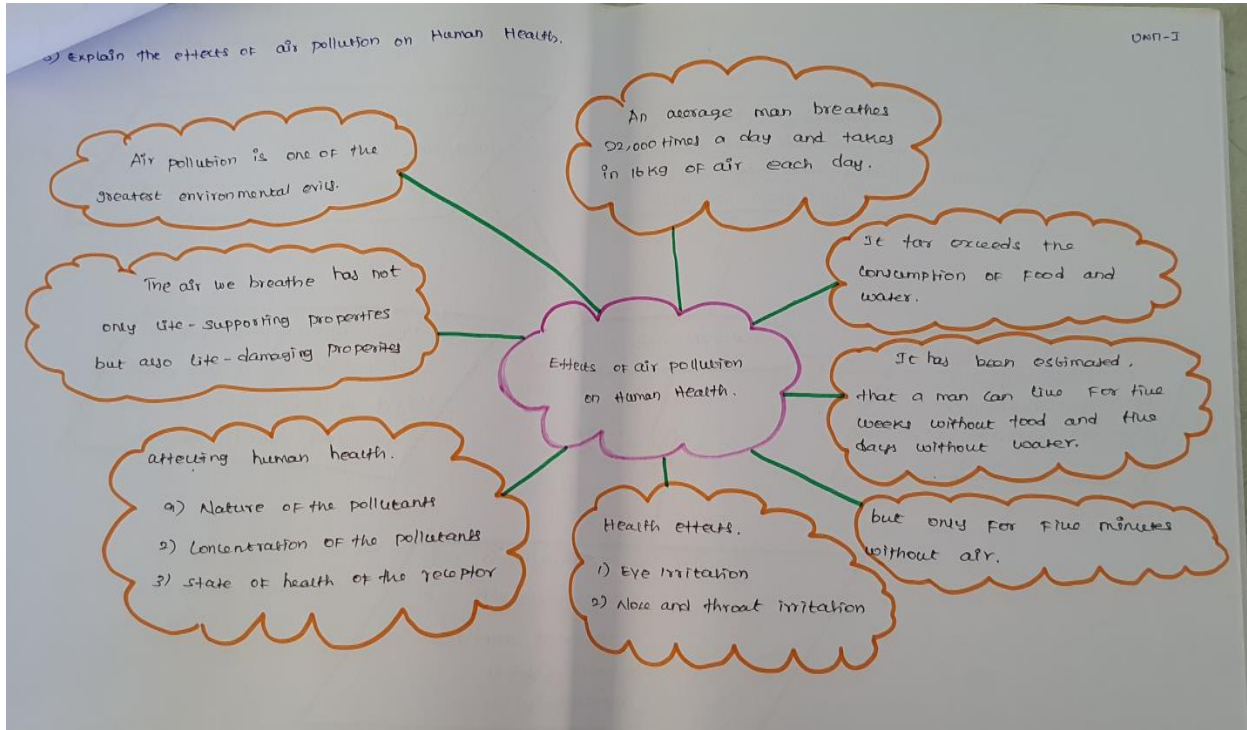 2) Explain the effects of air pollution on Human Health.
UNIT-I
An average man breathes
22,000 times a day and takes
in 16 kg of air each day.
Air pollution is one of the
greatest environmental evils.
It far exceeds the
consumption of food and
water.
The air we breathe has not
only life-supporting properties
but also life-damaging properties
Effects of air pollution
on Human Health.
It has been estimated.
that a man can live for five
weeks without food and five
days without water.
affecting human health.
1) Nature of the pollutants
2) Concentration of the pollutants
3) state of health of the receptor
Health effects.
1) Eye irritation
2) Nose and throat irritation
but only for five minutes
without air.